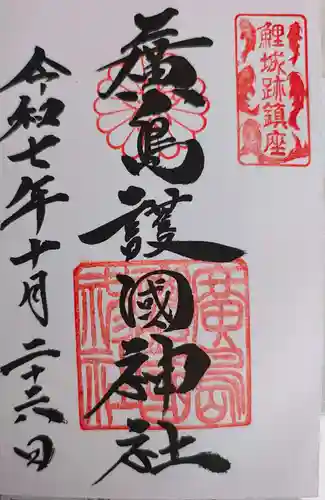 鯉城跡鎮座
廣島護國神社
令和七年十月二十六日
廣島護國神社